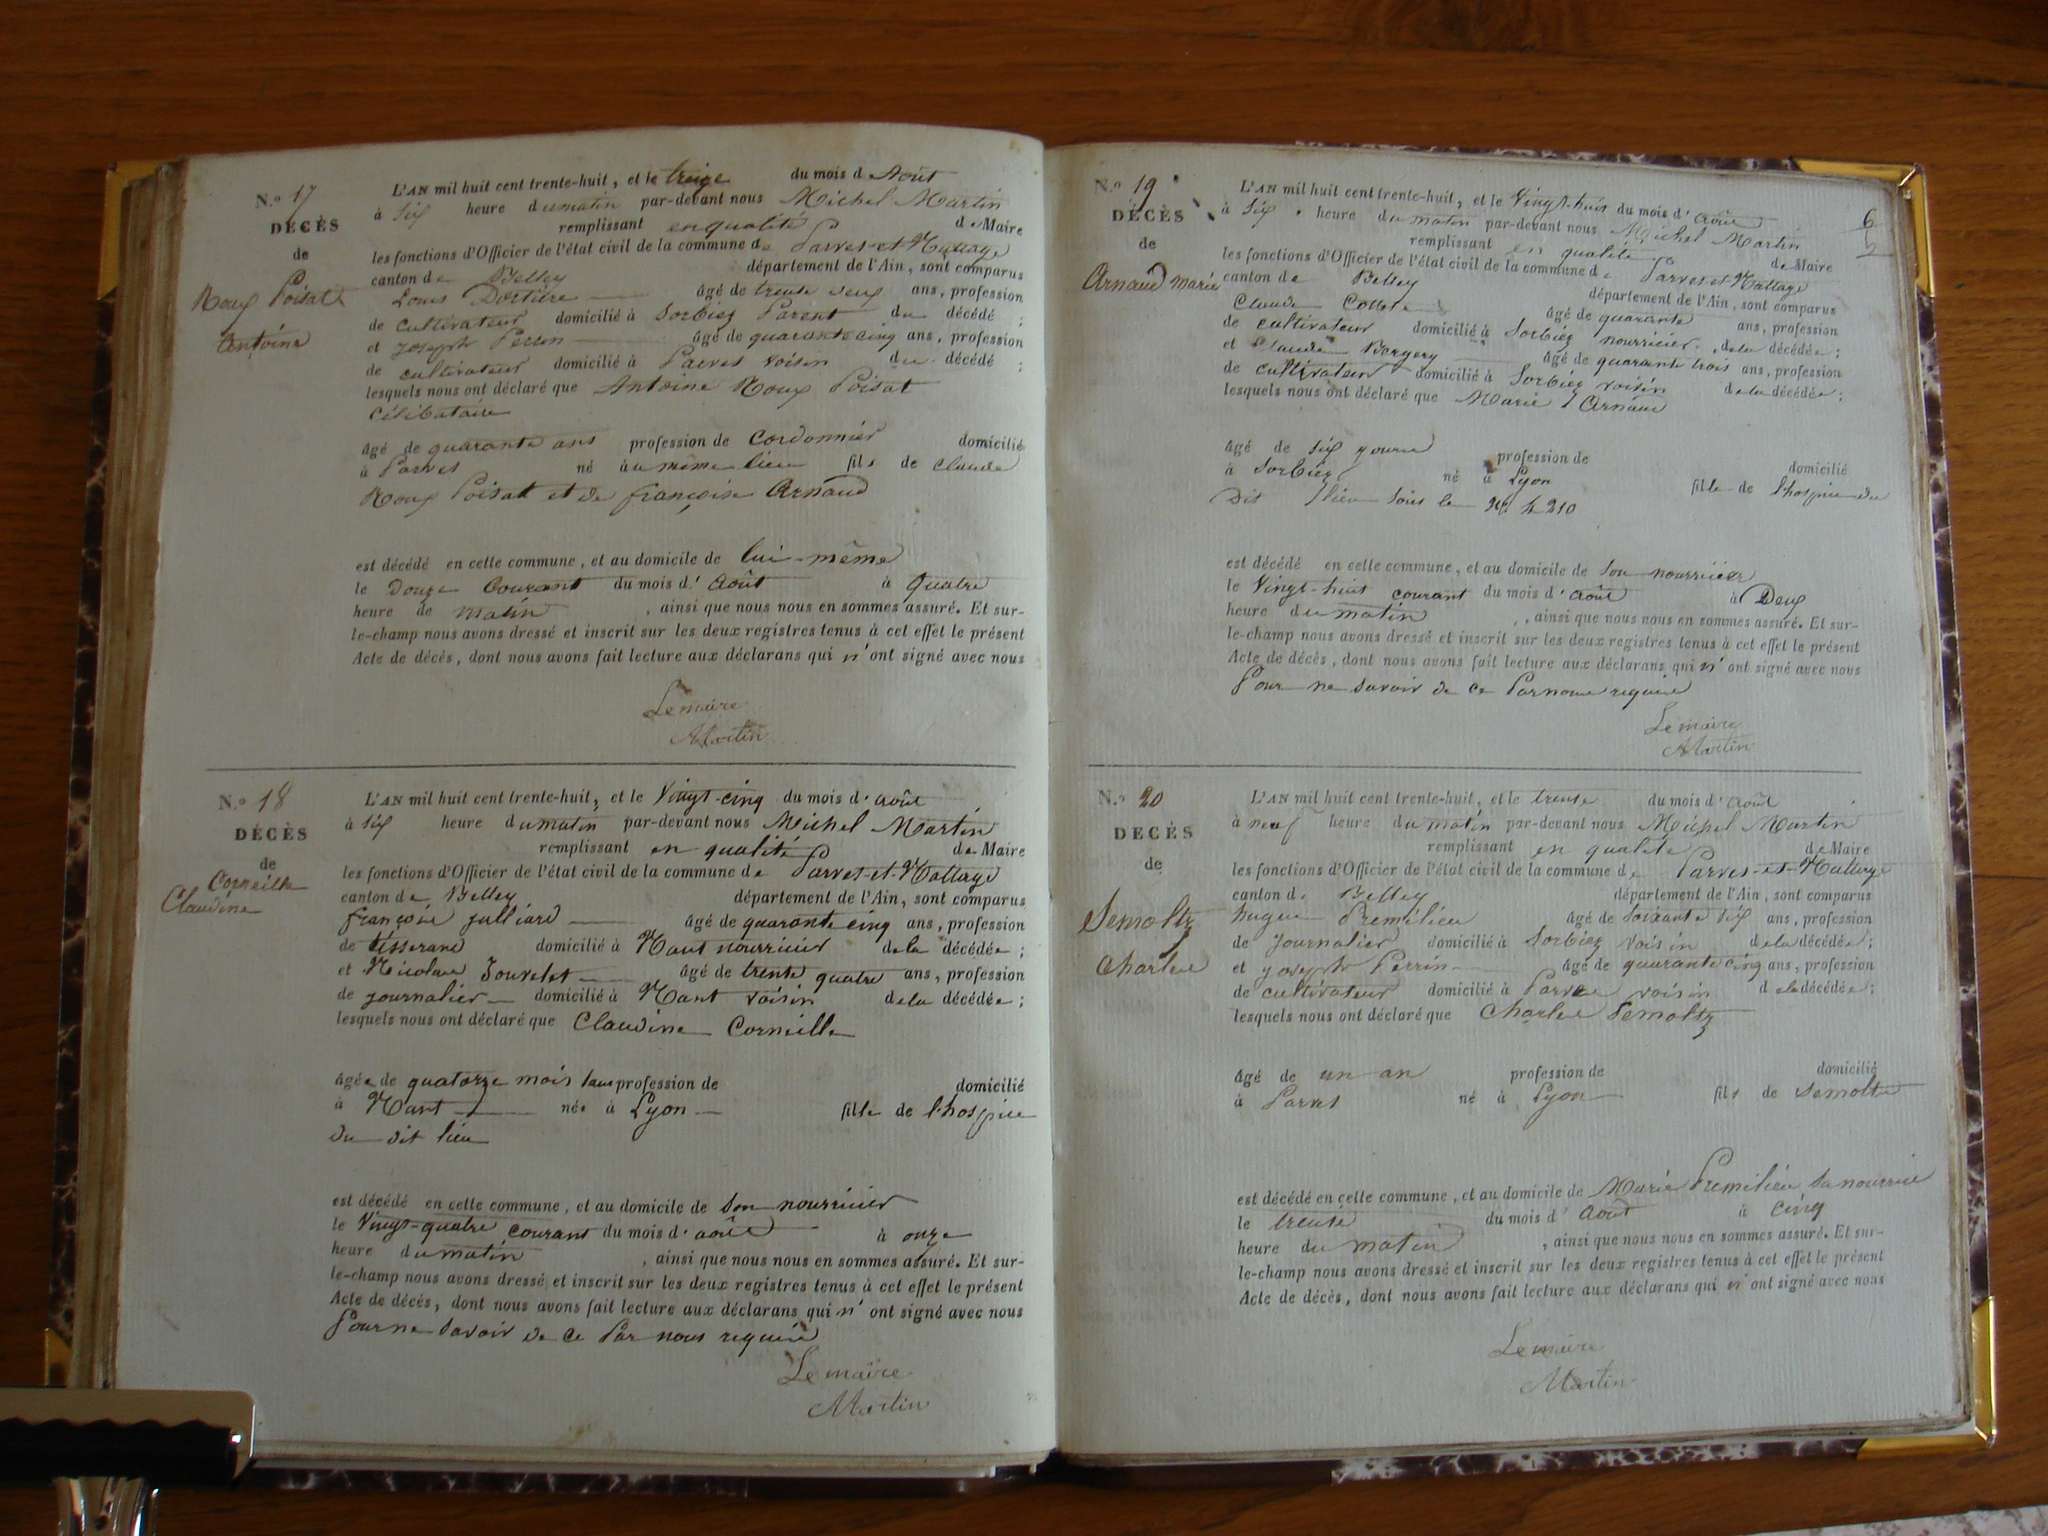 N.o 17
DÉCÈS
de
Roux Poisat
Antoine
L'AN mil huit cent trente-huit, et le treize du mois d Août
à six heure du matin par-devant nous Michel Martin
remplissant en qualité de Maire
les fonctions d'Officier de l'état civil de la commune de Parves-et-Nattage
canton de Belley département de l'Ain, sont comparus
Louis âgé de trente deux ans, profession
de cultivateur domicilié à Sorbiez Parent du décédé ;
et Joseph Perrin âgé de quarante cinq ans, profession
de cultivateur domicilié à Parves voisin du décédé ;
lesquels nous ont déclaré que Antoine Roux Poisat
célibataire
âgé de quarante ans profession de Cordonnier domicilié
à Parves né au même lieu fils de Claude
Roux Poisat et de françoise Arnaud
est décédé en cette commune, et au domicile de lui-même
le Douze Courant du mois d' Août à Quatre
heure de matin , ainsi que nous nous en sommes assuré. Et sur-
le-champ nous avons dressé et inscrit sur les deux registres tenus à cet effet le présent
Acte de décès, dont nous avons fait lecture aux déclarans qui n'ont signé avec nous
Le maire
Martin
N.o 18
DÉCÈS
de
Corneille
Claudine
L'AN mil huit cent trente-huit, et le Vingt-cinq du mois d' août
à six heure du matin par-devant nous Michel Martin
remplissant en qualité de Maire
les fonctions d'Officier de l'état civil de la commune de Parves-et-Nattage
canton de Belley département de l'Ain, sont comparus
françois julliard âgé de quarante cinq ans, profession
de tisserand domicilié à Nant nourricier de la décédée ;
et Nicolas âgé de trente quatre ans, profession
de journalier domicilié à Nant voisin de la décédée ;
lesquels nous ont déclaré que Claudine Corneille
âgée de quatorze mois sans profession de domicilié
à Nant née à Lyon fille de l'hospice
du dit lieu
est décédé en cette commune, et au domicile de son nourricier
le Vingt-quatre courant du mois d' août à onze
heure du matin , ainsi que nous nous en sommes assuré. Et sur-
le-champ nous avons dressé et inscrit sur les deux registres tenus à cet effet le présent
Acte de décès, dont nous avons fait lecture aux déclarans qui n'ont signé avec nous
Pour ne savoir de ce Par nous requis
Le maire
Martin
N.o 19
DÉCÈS
de
Arnaud marie
6
L'AN mil huit cent trente-huit, et le Vingt-huit du mois d' août
à six heure du matin par-devant nous Michel Martin
remplissant en qualité de Maire
les fonctions d'Officier de l'état civil de la commune de Parves-et-Nattage
canton de Belley département de l'Ain, sont comparus
Claude âgé de quarante ans, profession
de cultivateur domicilié à Sorbiez nourricier de la décédée ;
et Claude âgé de quarante trois ans, profession
de cultivateur domicilié à Sorbiez voisin de la décédée ;
lesquels nous ont déclaré que Marie Arnaud
âgé de six jours profession de domicilié
à Sorbiez né à Lyon fille de l'hospice du
Dit lieu sous le
est décédé en cette commune, et au domicile de son nourricier
le Vingt-huit courant du mois d' août à Deux
heure du matin , ainsi que nous nous en sommes assuré. Et sur-
le-champ nous avons dressé et inscrit sur les deux registres tenus à cet effet le présent
Acte de décès, dont nous avons fait lecture aux déclarans qui n'ont signé avec nous
Pour ne savoir de ce Par nous requis
Le maire
Martin
N.o 20
DÉCÈS
de
Semoltz
Charles
L'AN mil huit cent trente-huit, et le trente du mois d' août
à neuf heure du matin par-devant nous Michel Martin
remplissant en qualité de Maire
les fonctions d'Officier de l'état civil de la commune de Parves-et-Nattage
canton de Belley département de l'Ain, sont comparus
hugue Premilieu âgé de soixante six ans, profession
de journalier domicilié à Sorbiez voisin de la décédée ;
et joseph Perrin âgé de quarante cinq ans, profession
de cultivateur domicilié à Parves voisin de la décédée ;
lesquels nous ont déclaré que Charles Semoltz
âgé de un an profession de domicilié
à Parves né à Lyon fils de Semoltz
est décédé en cette commune, et au domicile de Marie Premilieu sa nourrice
le trente du mois d' août à cinq
heure du matin , ainsi que nous nous en sommes assuré. Et sur-
le-champ nous avons dressé et inscrit sur les deux registres tenus à cet effet le présent
Acte de décès, dont nous avons fait lecture aux déclarans qui n'ont signé avec nous
Le maire
Martin